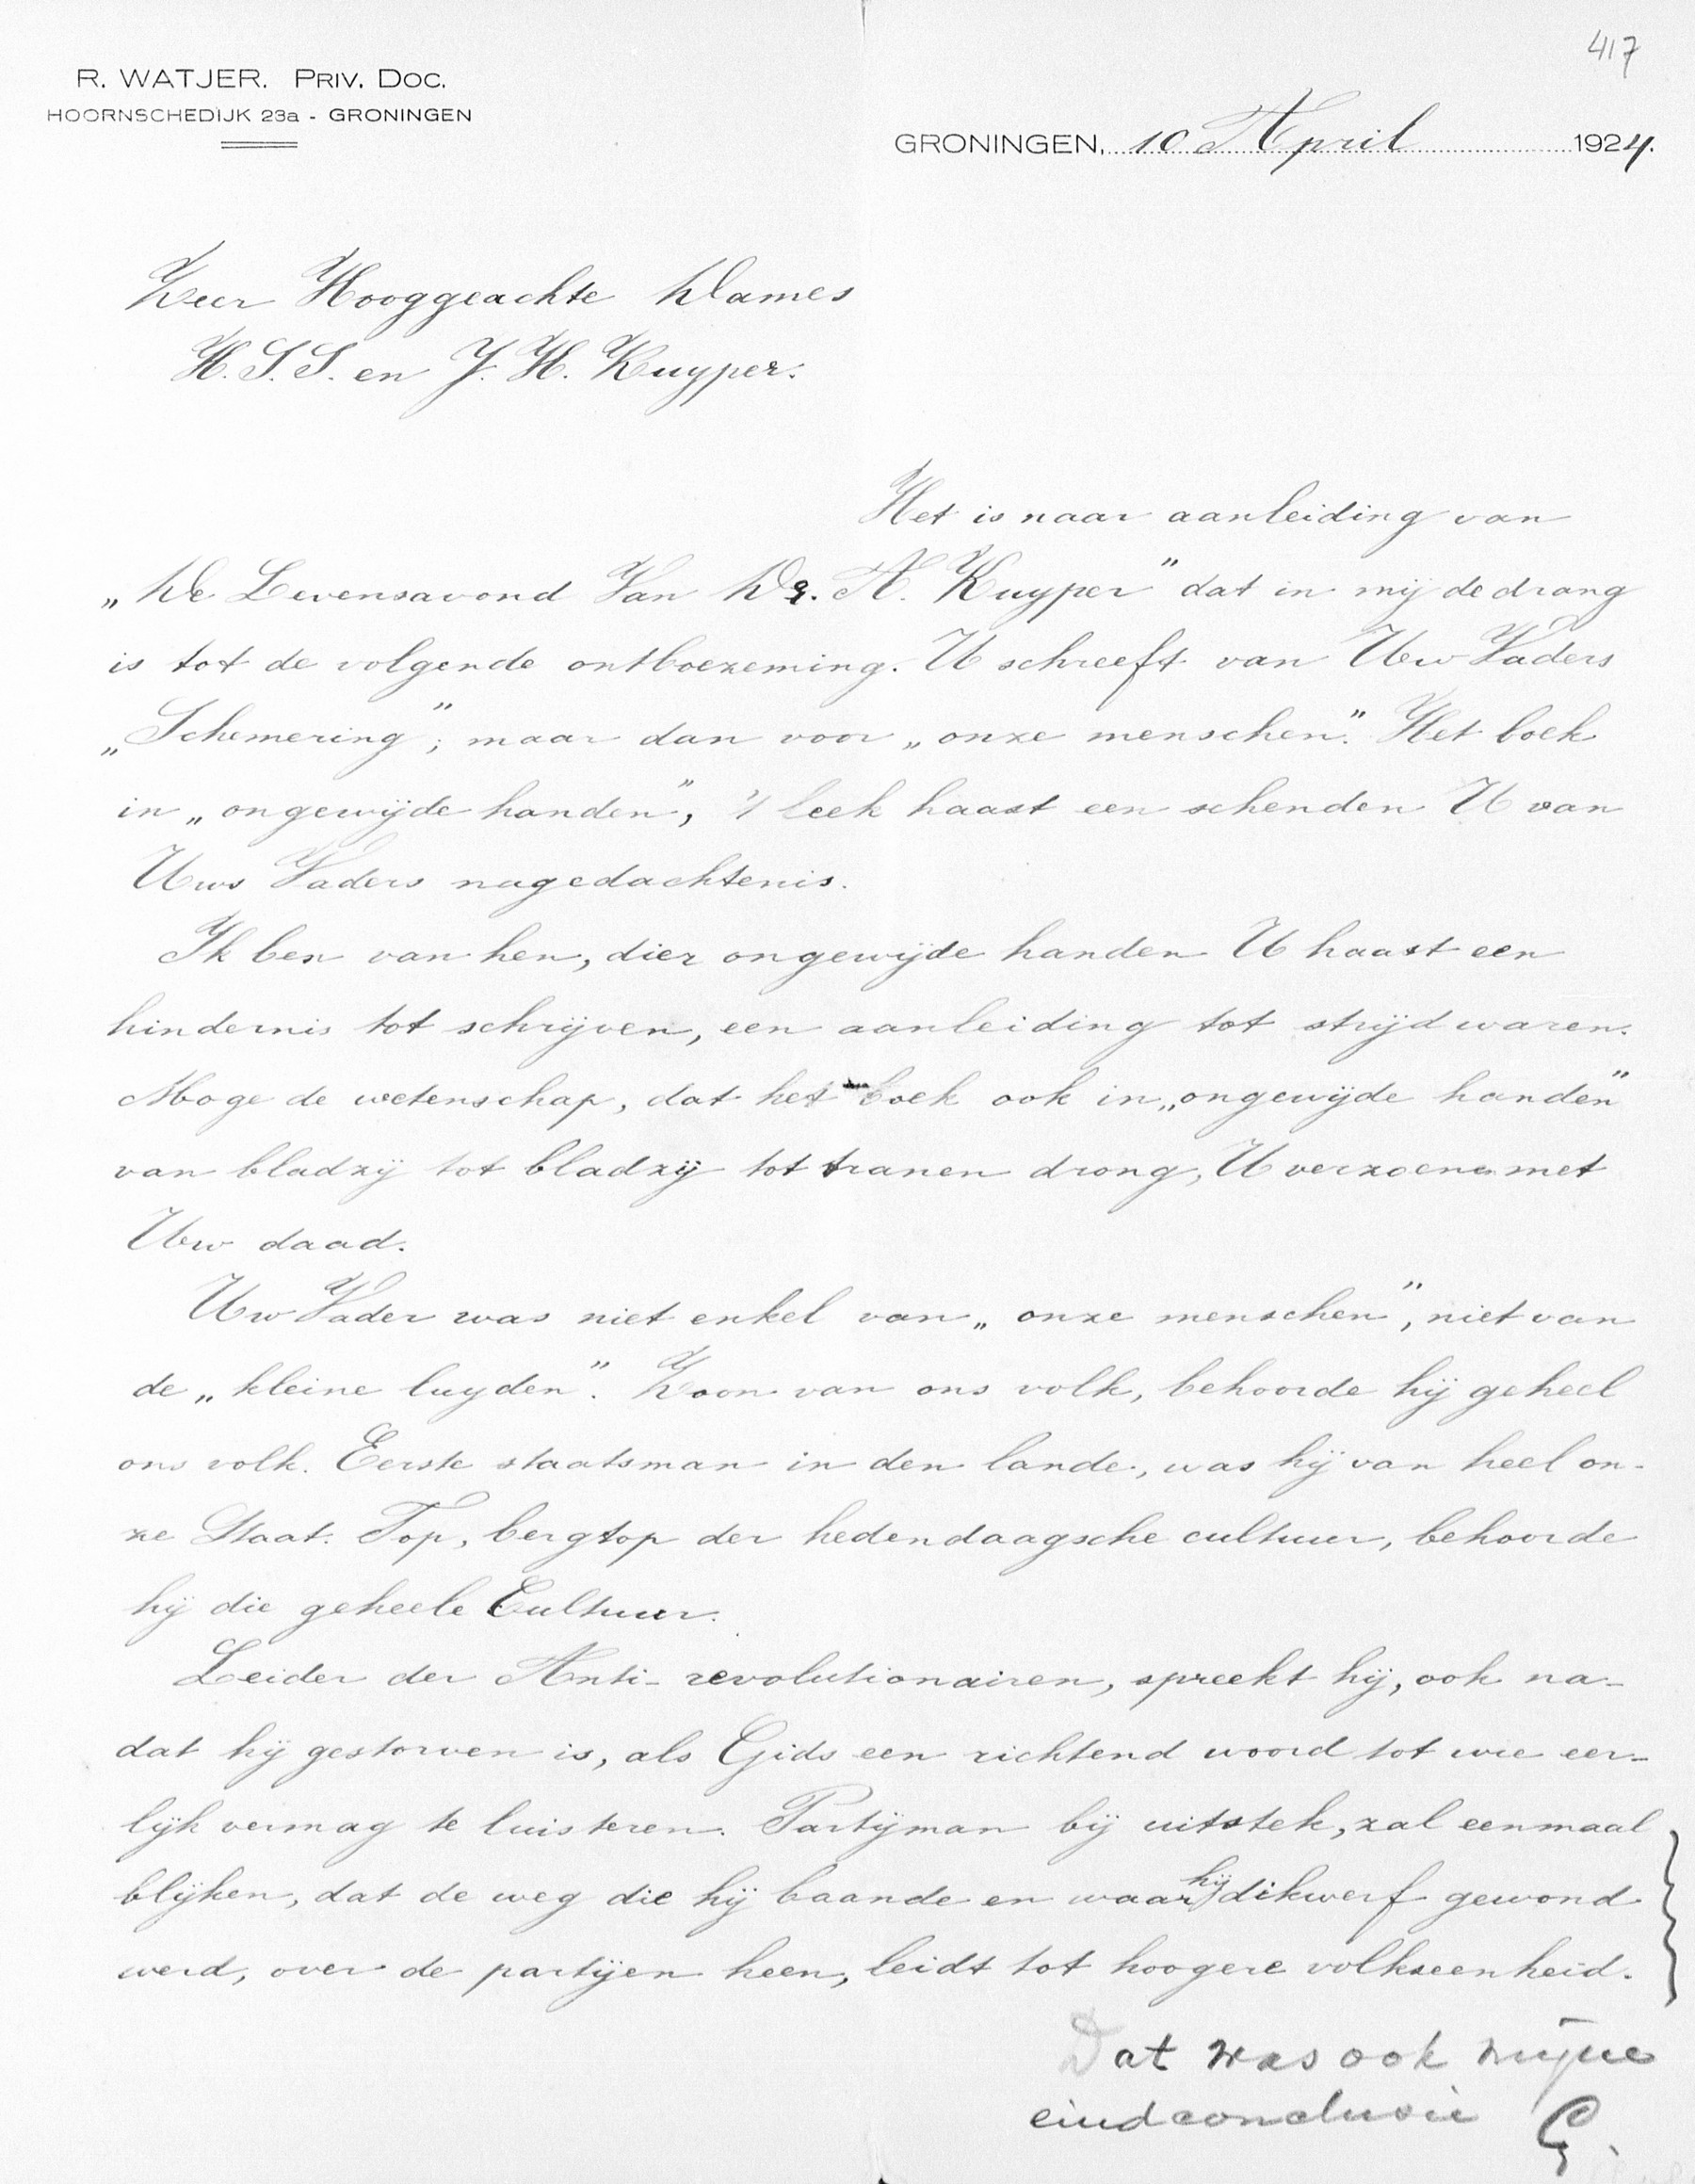 417
R. WATJER. PRIV. DOC.
HOORNSCHEDIJK 23a - GRONINGEN
GRONINGEN, 10 April 1924.
Zeer Hooggeachte Dames
H. S. S. en J. H. Kuyper.
Het is naar aanleiding van
„De Levensavond Van Dr. A. Kuyper" dat in mij de drang
is tot de volgende ontboezeming. U schreeft van Uw Vaders
„Schemering", maar dan voor „onze menschen". Het boek
in „ongewijde handen", 't leek haast een schenden U van
Uws Vaders nagedachtenis.
Ik ben van hen, dier ongewijde handen U haast een
hindernis tot schrijven, een aanleiding tot strijd waren.
Moge de wetenschap, dat het boek ook in „ongewijde handen"
van bladzij tot bladzij tot tranen drong, U verzoene met
Uw daad.
Uw Vader was niet enkel van „onze menschen", niet van
de „kleine luyden". Zoon van ons volk, behoorde hij geheel
ons volk. Eerste staatsman in den lande, was hij van heel on-
ze Staat. Top, bergtop der hedendaagsche cultuur, behoorde
hij die geheele Cultuur.
Leider der Anti-revolutionairen, spreekt hij, ook na-
dat hij gestorven is, als Gids een richtend woord tot wie eer-
lijk vermag te luisteren. Partijman bij uitstek, zal eenmaal
blijken, dat de weg die hij baande en waar hij dikwerf gewond
werd, over de partijen heen, leidt tot hoogere volkseenheid.
Dat was ook mijne
eindconclusie G.